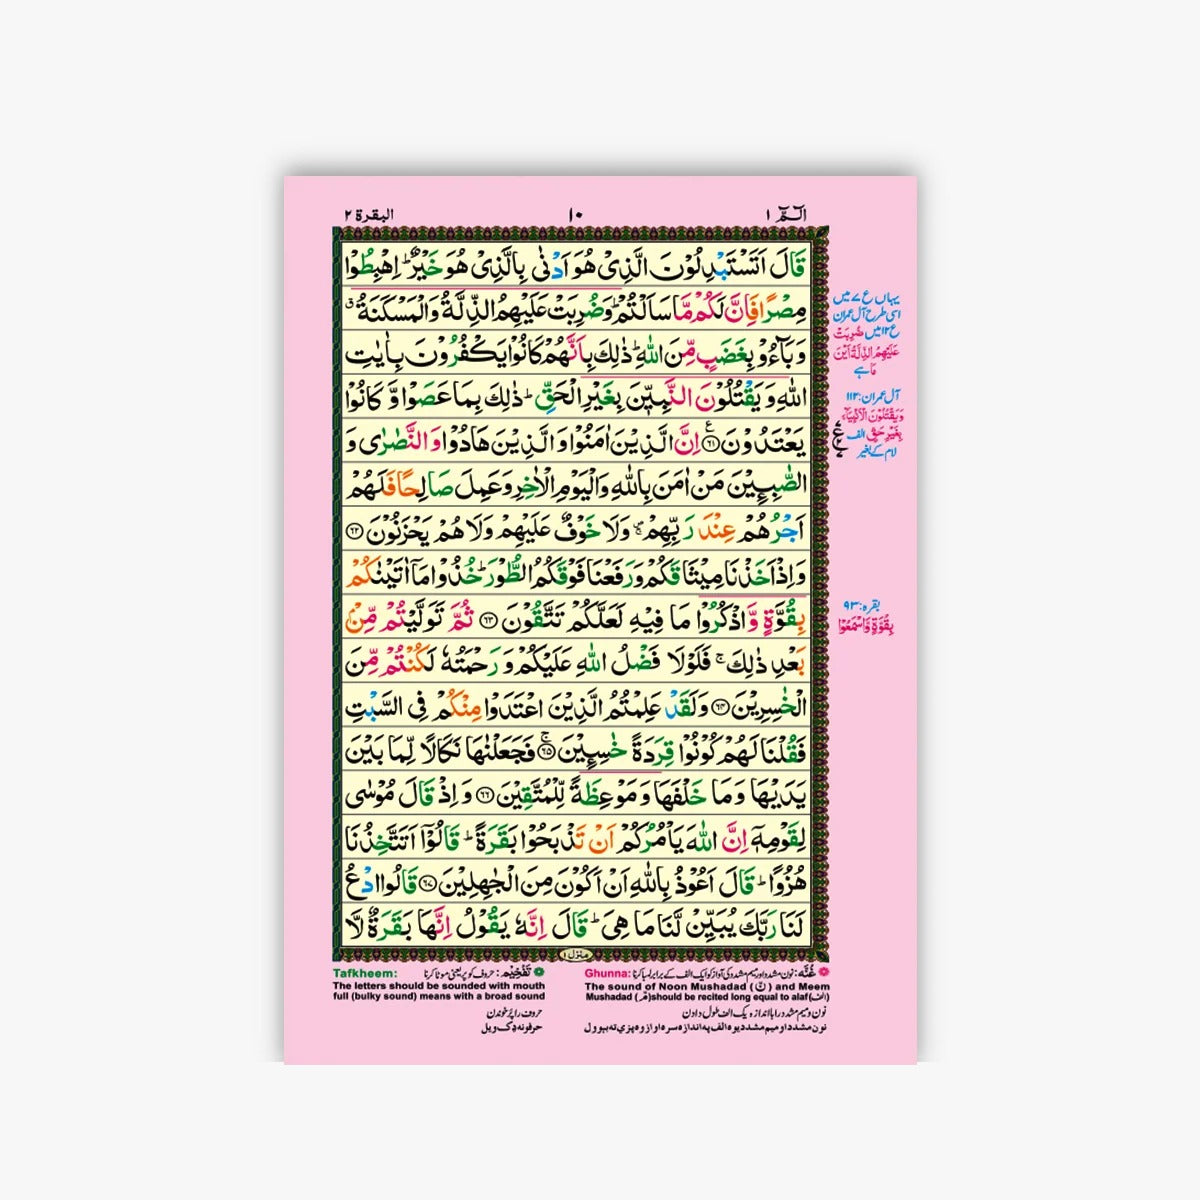 الٓمّٓ ١
١٠
البقرة ٢
قَالَ اَتَسْتَبْدِلُوْنَ الَّذِىْ هُوَ اَدْنٰى بِالَّذِىْ هُوَ خَيْرٌ ؕ اِهْبِطُوْا
مِصْرًا فَاِنَّ لَكُمْ مَّا سَاَلْتُمْ ؕ وَضُرِبَتْ عَلَيْهِمُ الذِّلَّةُ وَالْمَسْكَنَةُ ۗ
وَبَآءُوْ بِغَضَبٍ مِّنَ اللّٰهِ ؕ ذٰلِكَ بِاَنَّهُمْ كَانُوْا يَكْفُرُوْنَ بِاٰيٰتِ
اللّٰهِ وَيَقْتُلُوْنَ النَّبِيّٖنَ بِغَيْرِ الْحَقِّ ؕ ذٰلِكَ بِمَا عَصَوْا وَّكَانُوْا
يَعْتَدُوْنَ ﴿٦١﴾ اِنَّ الَّذِيْنَ اٰمَنُوْا وَالَّذِيْنَ هَادُوْا وَالنَّصٰرٰى وَ
الصّٰبِـِٕيْنَ مَنْ اٰمَنَ بِاللّٰهِ وَالْيَوْمِ الْاٰخِرِ وَعَمِلَ صَالِحًا فَلَهُمْ
اَجْرُهُمْ عِنْدَ رَبِّهِمْ ۚ وَلَا خَوْفٌ عَلَيْهِمْ وَلَا هُمْ يَحْزَنُوْنَ ﴿٦٢﴾
وَاِذْ اَخَذْنَا مِيْثَاقَكُمْ وَرَفَعْنَا فَوْقَكُمُ الطُّوْرَ ؕ خُذُوْا مَاۤ اٰتَيْنٰكُمْ
بِقُوَّةٍ وَّاذْكُرُوْا مَا فِيْهِ لَعَلَّكُمْ تَتَّقُوْنَ ﴿٦٣﴾ ثُمَّ تَوَلَّيْتُمْ مِّنْۢ
بَعْدِ ذٰلِكَ ۚ فَلَوْلَا فَضْلُ اللّٰهِ عَلَيْكُمْ وَرَحْمَتُهٗ لَكُنْتُمْ مِّنَ
الْخٰسِرِيْنَ ﴿٦٤﴾ وَلَقَدْ عَلِمْتُمُ الَّذِيْنَ اعْتَدَوْا مِنْكُمْ فِى السَّبْتِ
فَقُلْنَا لَهُمْ كُوْنُوْا قِرَدَةً خٰسِـِٕيْنَ ۚ﴿٦٥﴾ فَجَعَلْنٰهَا نَكَالًا لِّمَا بَيْنَ
يَدَيْهَا وَمَا خَلْفَهَا وَمَوْعِظَةً لِّلْمُتَّقِيْنَ ﴿٦٦﴾ وَاِذْ قَالَ مُوْسٰى
لِقَوْمِهٖۤ اِنَّ اللّٰهَ يَاْمُرُكُمْ اَنْ تَذْبَحُوْا بَقَرَةً ؕ قَالُوْٓا اَتَتَّخِذُنَا
هُزُوًا ؕ قَالَ اَعُوْذُ بِاللّٰهِ اَنْ اَكُوْنَ مِنَ الْجٰهِلِيْنَ ﴿٦٧﴾ قَالُوا ادْعُ
لَنَا رَبَّكَ يُبَيِّنْ لَّنَا مَا هِىَ ؕ قَالَ اِنَّهٗ يَقُوْلُ اِنَّهَا بَقَرَةٌ لَّا
منزل ١
یہاں ع ۷ میں
اسی طرح آل عمران
ع ۱۲ میں ضُرِبَتْ
عَلَيْهِمُ الذِّلَّةُ اَيْنَ
مَا ہے
آل عمران: ۱۱۲
وَيَقْتُلُوْنَ الْاَنْبِيَآءَ
بِغَيْرِ حَقٍّ الف
لام کے بغیر
بقرہ: ۹۳
بِقُوَّةٍ وَّاسْمَعُوْا
غُنَّہ: نون مشدد اور میم مشدد کی آواز کو ایک الف کے برابر لمبا کرنا Ghunna:
The sound of Noon Mushadad (نّ) and Meem
Mushadad (مّ) should be recited long equal to alaf (الف)
نون و میم مشدد را با اندازہ یک الف طول دادن
نون مشدد او میم مشدد یوہ الف پہ اندازہ سرہ اواز وہ پزې تہ بہ وول
تَفْخِیْم: حروف کو پر یعنی موٹا کرنا Tafkheem:
The letters should be sounded with mouth
full (bulky sound) means with a broad sound
حروف را پر خوندن
حرفونہ ډک ویل